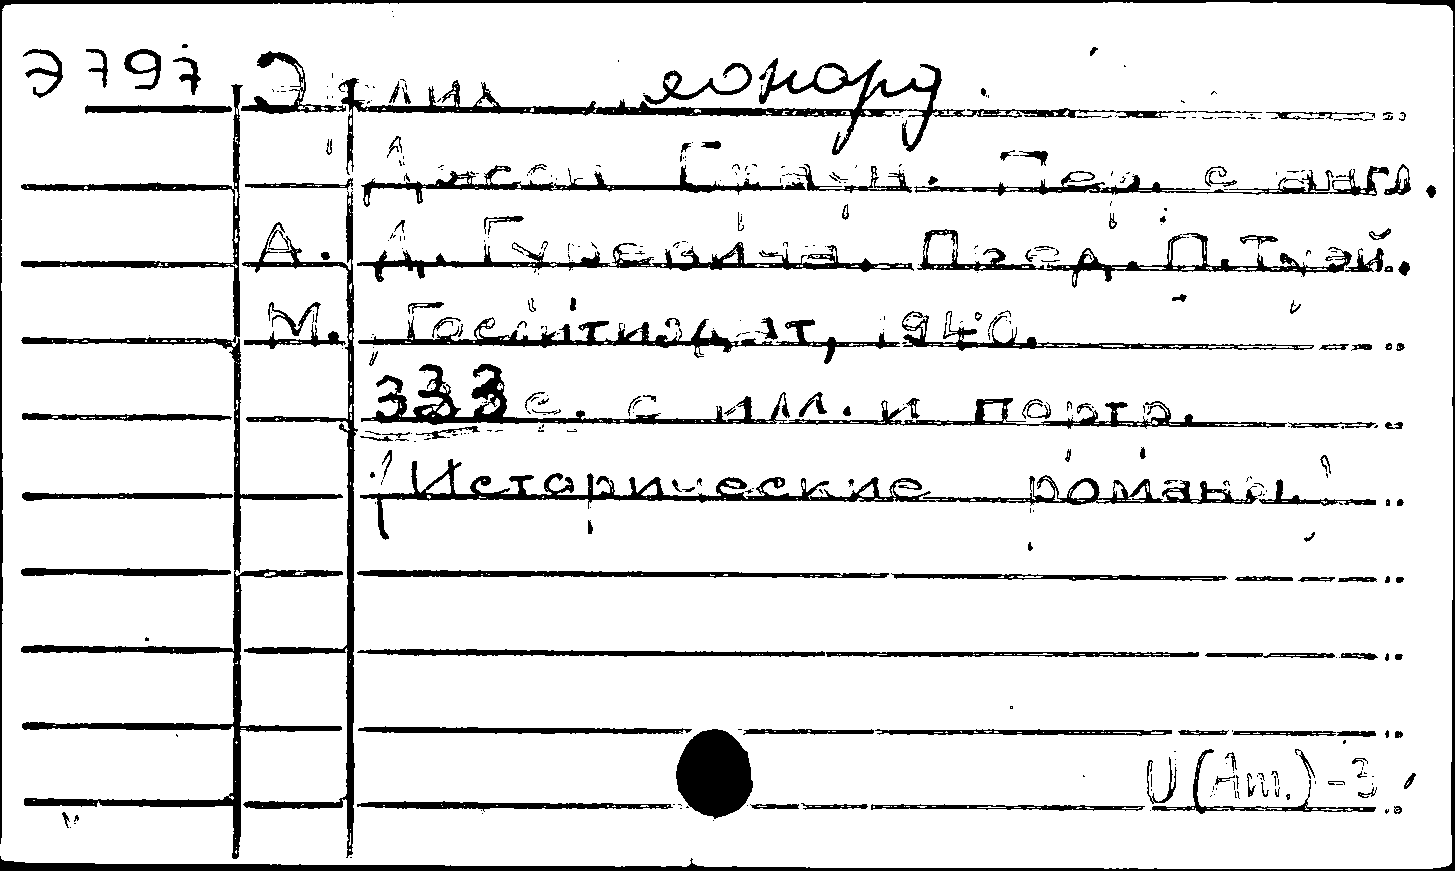 Э797 Эрлих Леонард.
Джон Браун. Пер. с англ.
А. Д. Гуревича. Пред. П. Тузй.
М. Гослитиздат, 1940.
333 с. с илл. и портр.
(Исторические романы)
U (Am.) - 3